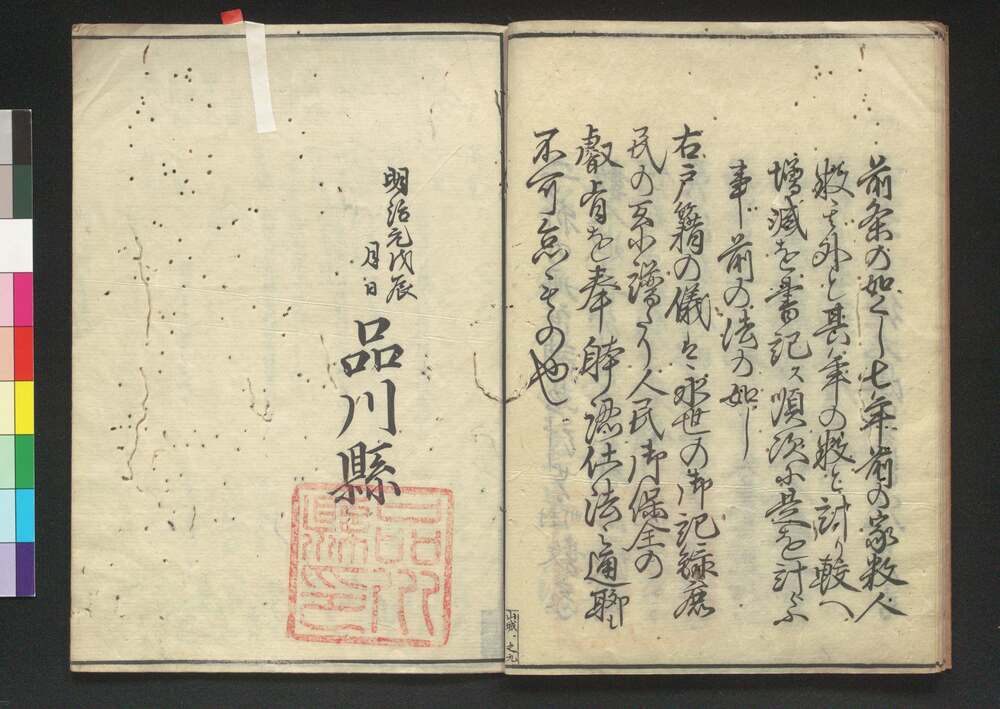 前条の如くし七年前の家数人
数其外と其年の数と計り較へ
増減を書記ス順次に是を計ふ
事前の法の如し
右戸籍の儀ハ永世の御記録庶
民の系譜なり人民御保全の
叡旨を奉体認仕法之通聊も
不可怠もの也
明治元戊辰
月日
品川縣
品川縣印
山城、之九